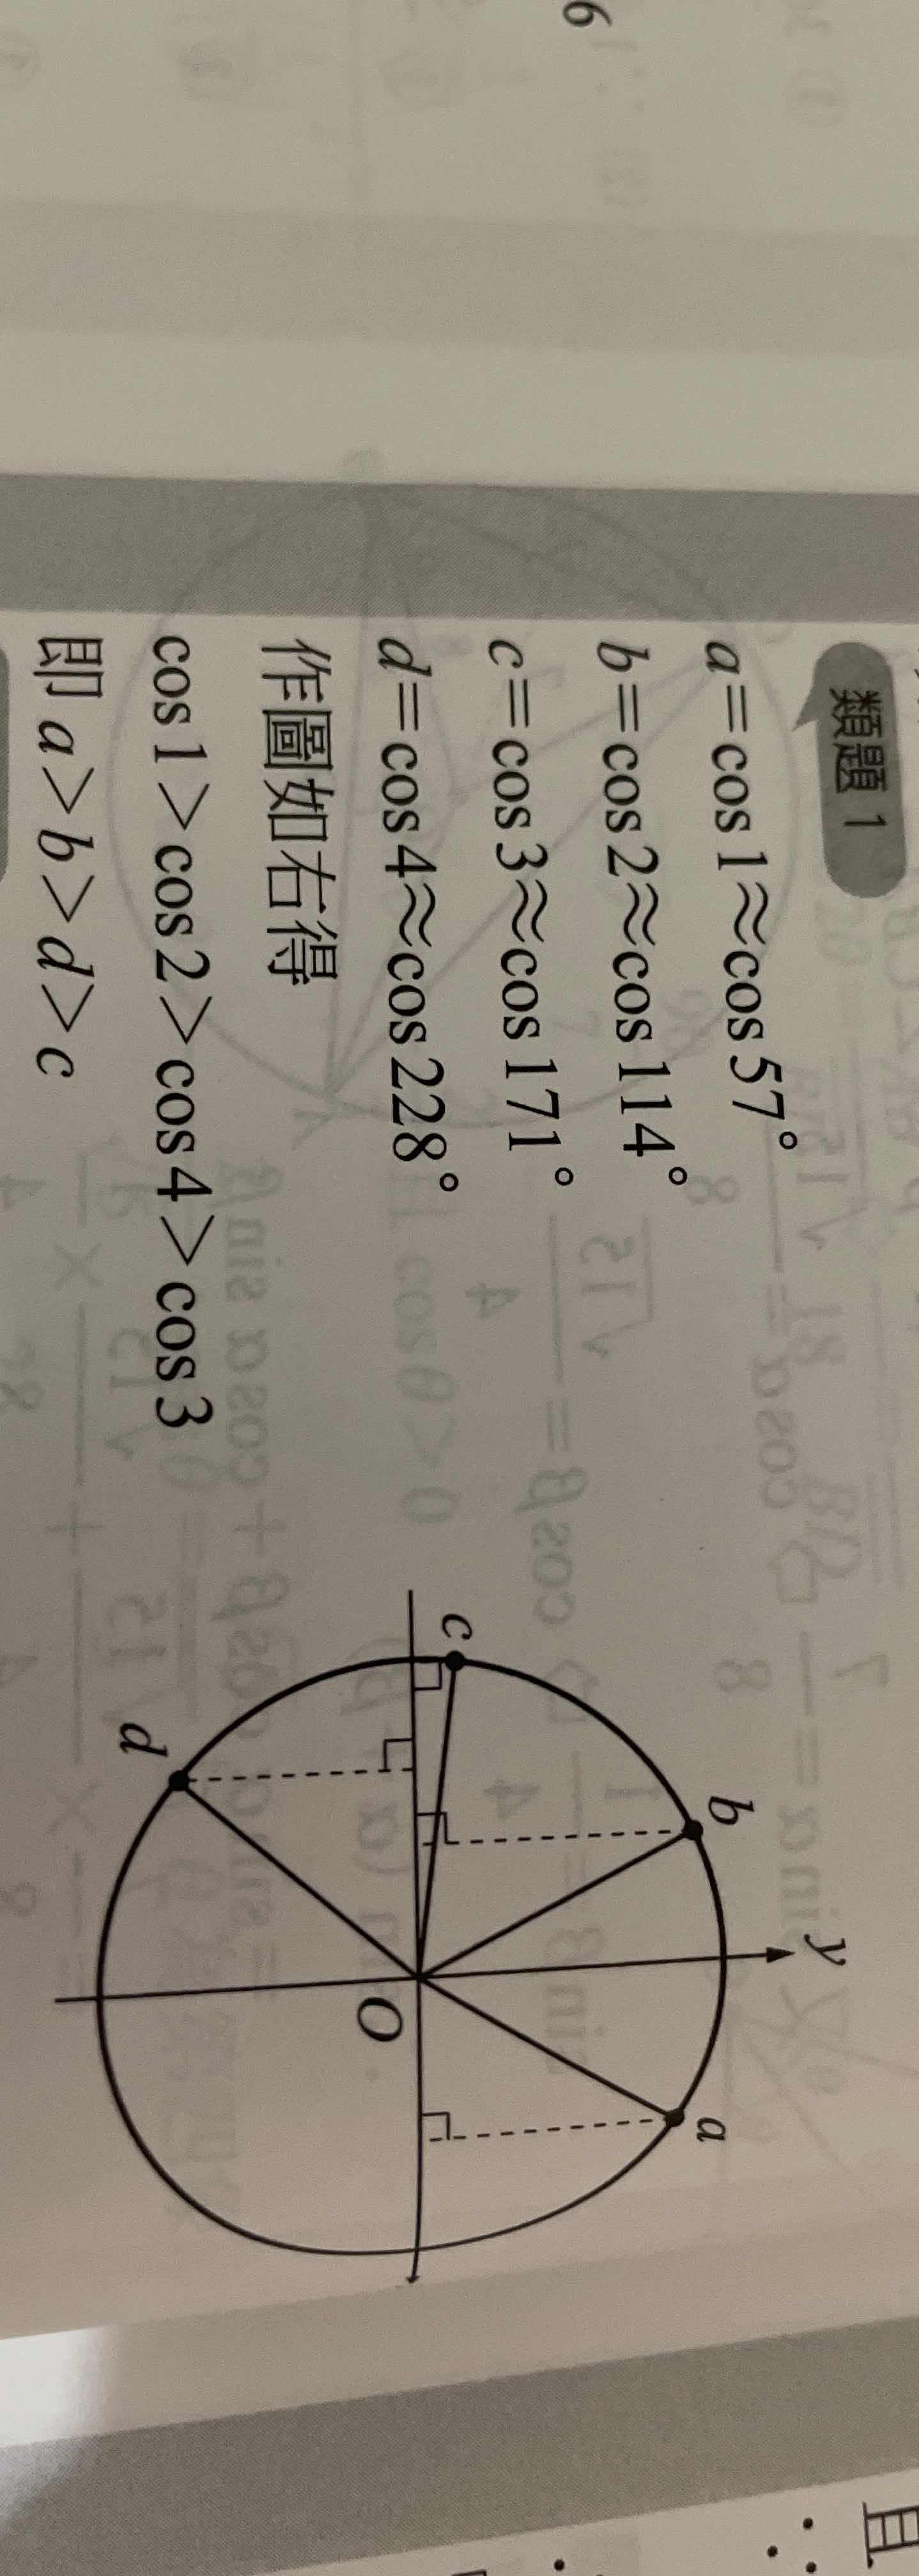 6
類題 1
a=cos1≈cos57°
b=cos2≈cos114°
c=cos3≈cos171°
d=cos4≈cos228°
作圖如右得
cos1>cos2>cos4>cos3
即 a>b>d>c
y
b
a
c
O
d
且
∴